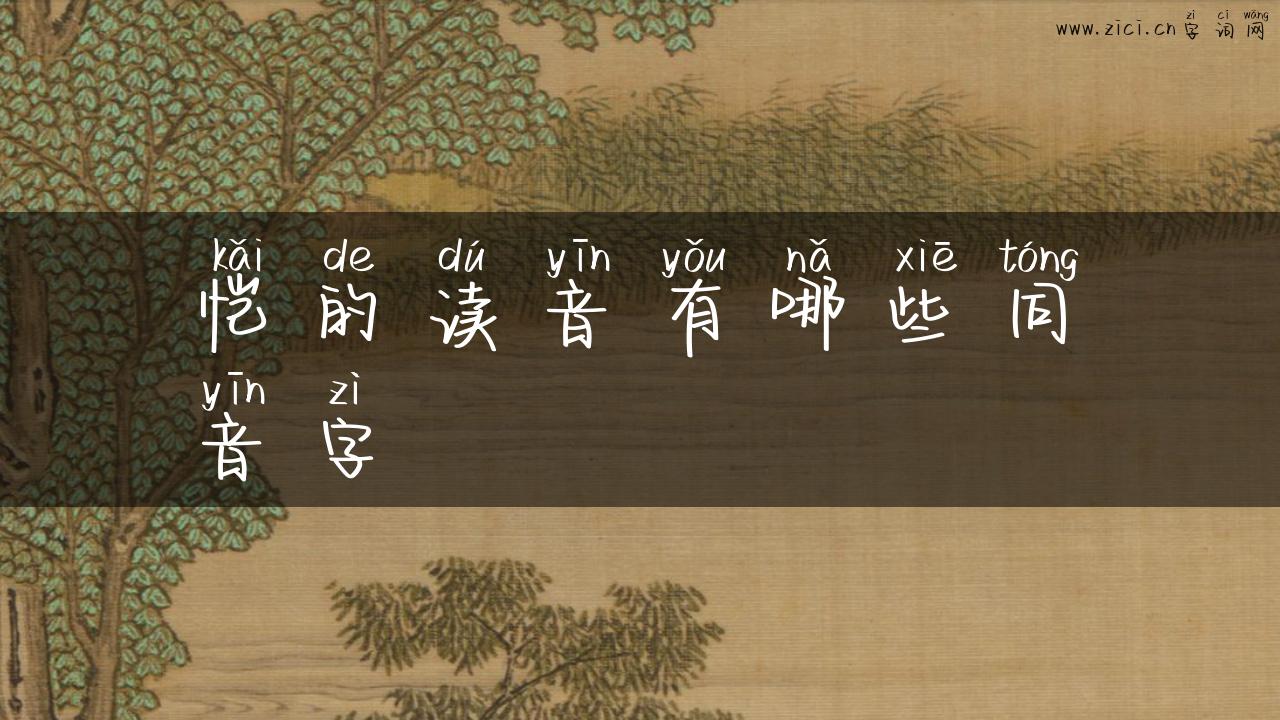 zì cí wǎng
www.zici.cn 字词网
kǎi de dú yīn yǒu nǎ xiē tóng
恺的读音有哪些同
yīn zì
音字